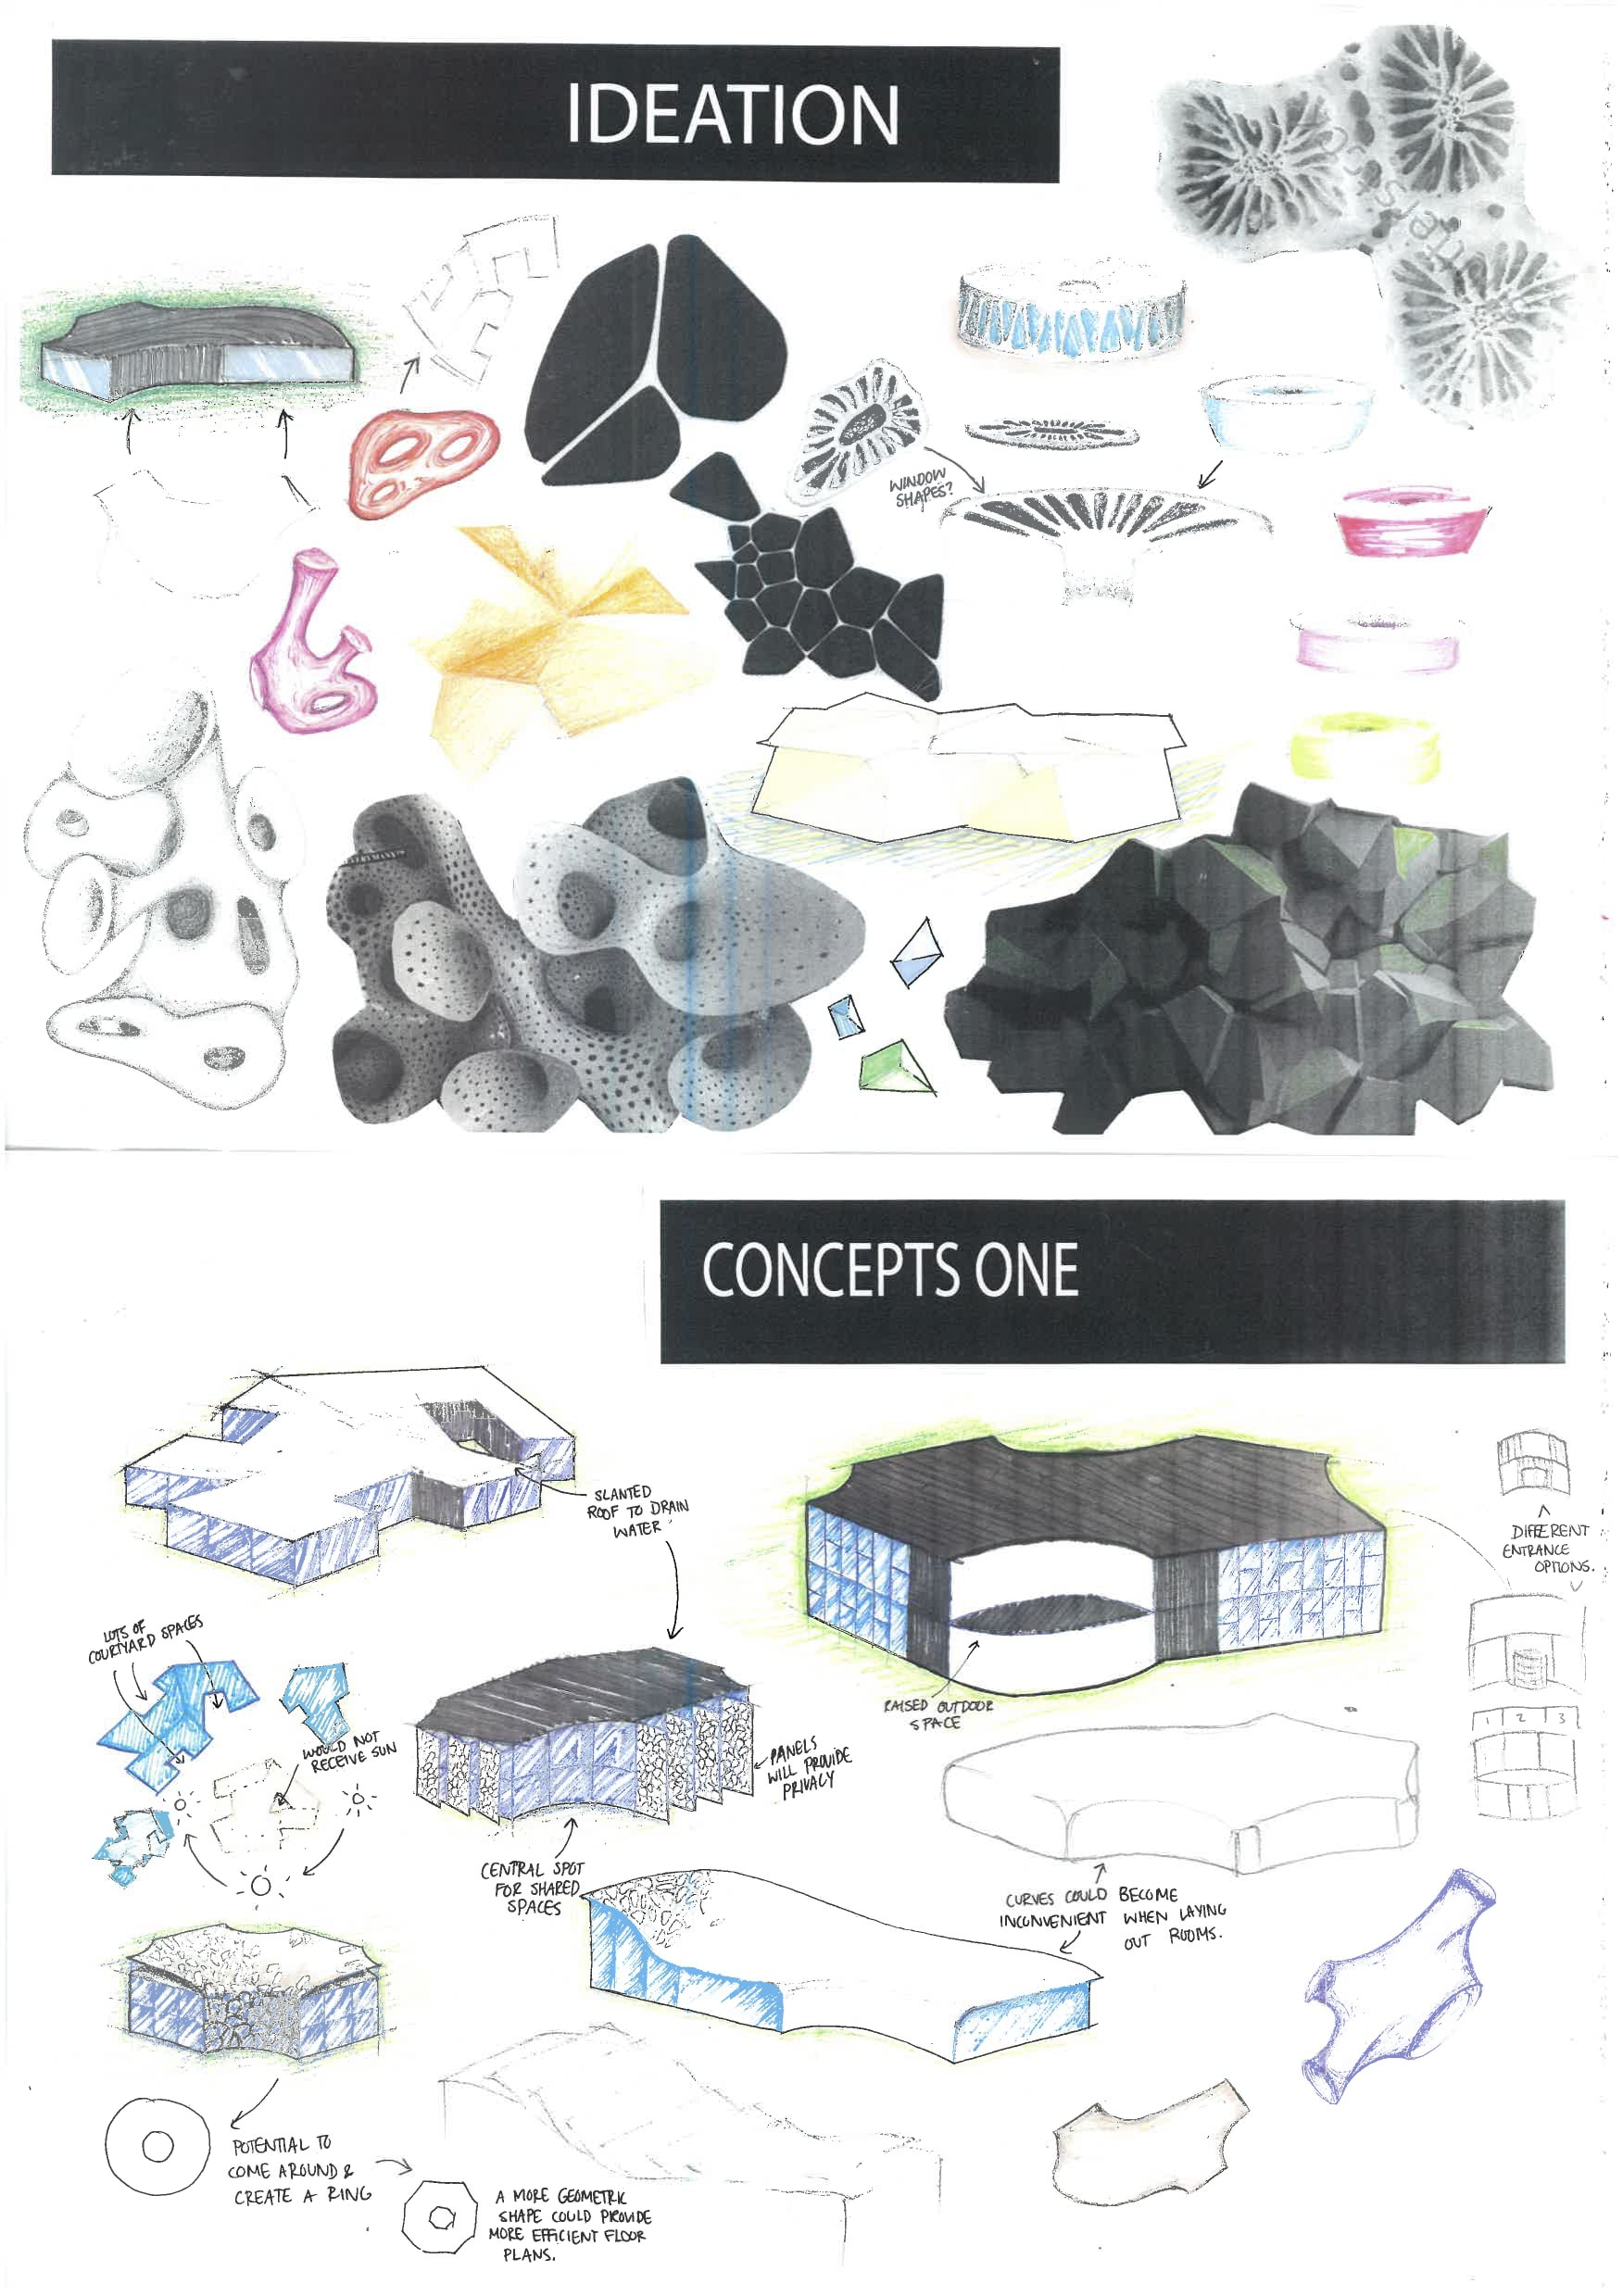 IDEATION
WINDOW
SHAPES?
CONCEPTS ONE
SLANTED
ROOF TO DRAIN
WATER
DIFFERENT
ENTRANCE
OPTIONS.
LOTS OF
COURTYARD SPACES
RAISED OUTDOOR
SPACE
WOULD NOT
RECEIVE SUN
PANELS
WILL PROVIDE
PRIVACY
1 2 3
CENTRAL SPOT
FOR SHARED
SPACES
CURVES COULD BECOME
INCONVENIENT WHEN LAYING
OUT ROOMS.
POTENTIAL TO
COME AROUND &
CREATE A RING
A MORE GEOMETRIC
SHAPE COULD PROVIDE
MORE EFFICIENT FLOOR
PLANS.